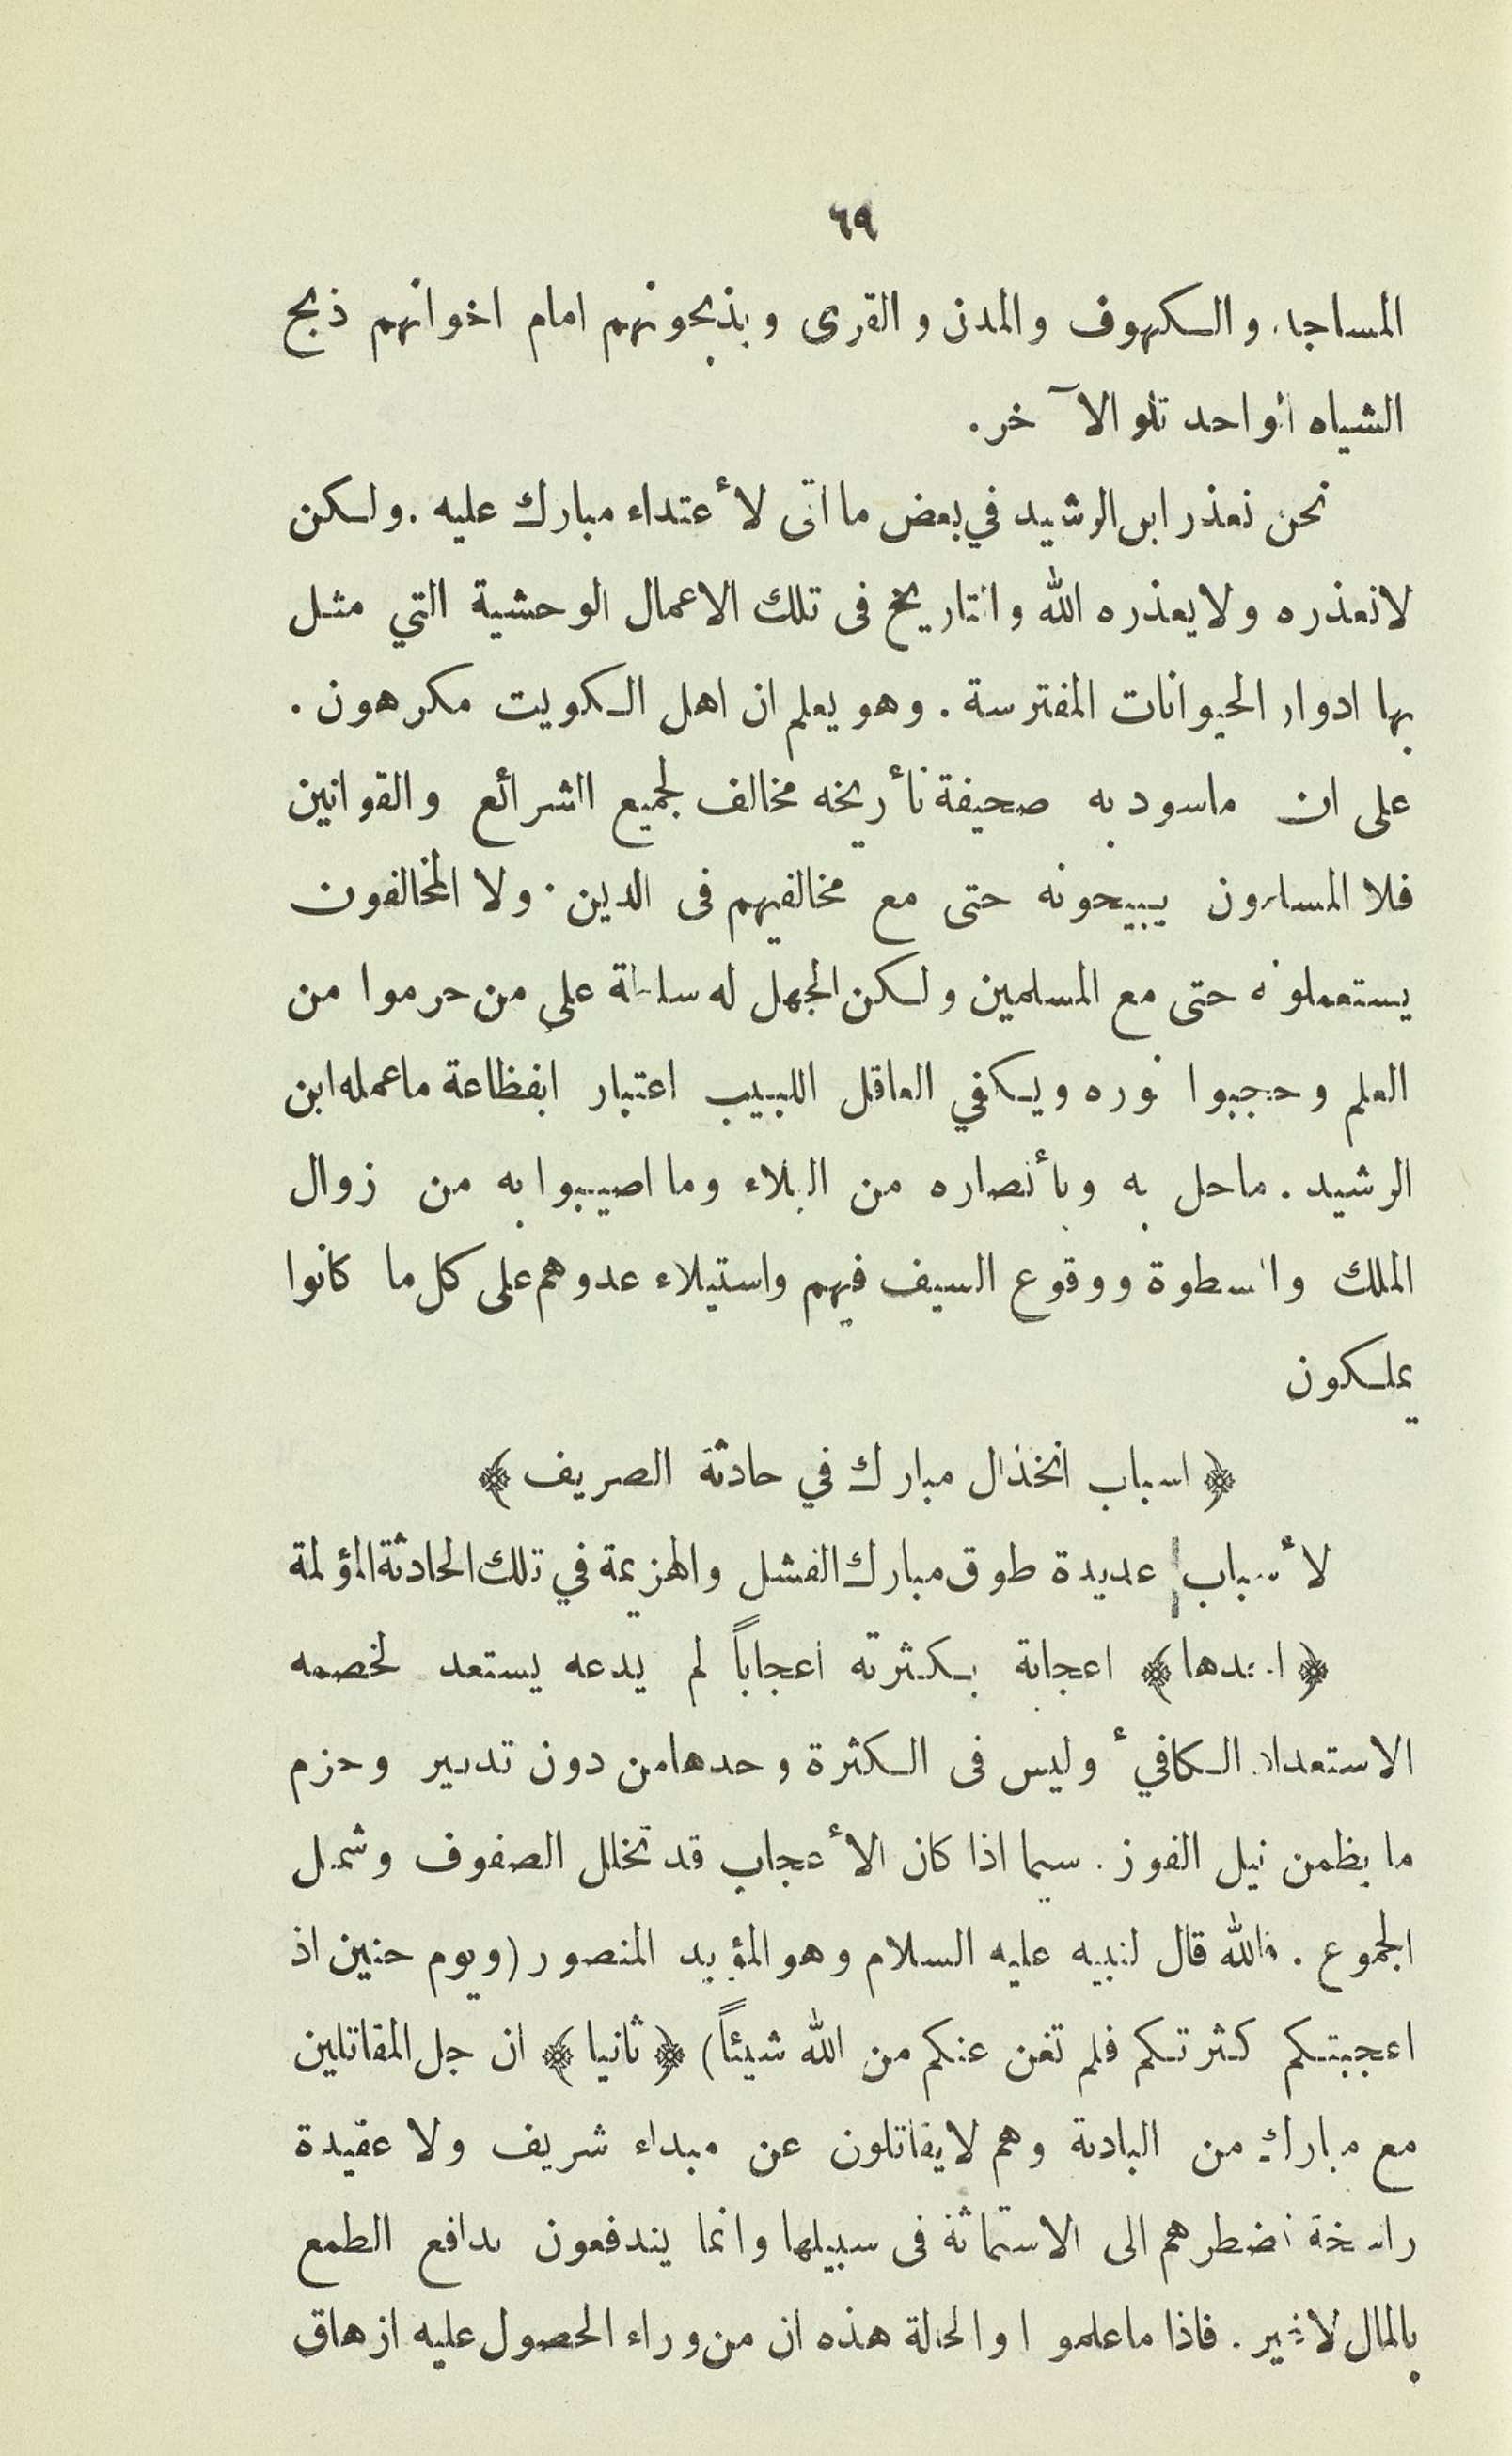 ٦٩
المساجد والكهوف والمدن والقرى ويذبحونهم امام اخوانهم ذبح
الشياه الواحد تلو الآخر.
نحن نعذر ابن الرشيد في بعض ما اتى لأعتداء مبارك عليه . ولكن
لانعذره ولايعذره الله والتاريخ فى تلك الاعمال الوحشية التي مثل
بها ادوار الحيوانات المفترسة . وهو يعلم ان اهل الكويت مكرهون .
على ان ماسود به صحيفة تأريخه مخالف لجميع الشرائع والقوانين
فلا المسلمون يبيحونه حتى مع مخالفيهم فى الدين . ولا المخالفون
يستعملونه حتى مع المسلمين ولكن الجهل له سلطة على من حرموا من
العلم وحجبوا نوره ويكفي العاقل اللبيب اعتبار ابفظاعة ماعمله ابن
الرشيد . ماحل به وبأنصاره من البلاء وما اصيبوا به من زوال
الملك والسطوة ووقوع السيف فيهم واستيلاء عدوهم على كل ما كانوا
يملكون
﴿ اسباب انخذال مبارك في حادثة الصريف ﴾
لأسباب عديدة طوق مبارك الفشل والهزيمة في تلك الحادثة المؤلمة
﴿ احدها ﴾ اعجابة بكثرته اعجاباً لم يدعه يستعد لخصمه
الاستعداد الكافيء وليس فى الكثرة وحدها من دون تدبير وحزم
ما يظمن نيل الفوز . سيما اذا كان الأعجاب قد تخلل الصفوف وشمل
الجموع . فالله قال لنبيه عليه السلام وهو المؤيد المنصور (ويوم حنين اذ
اعجبتكم كثرتكم فلم تغن عنكم من الله شيئاً) ﴿ ثانيا ﴾ ان جل المقاتلين
مع مبارك من البادية وهم لايقاتلون عن مبداء شريف ولا عقيدة
راسخة تضطرهم الى الاستماتة فى سبيلها وانما يندفعون بدافع الطمع
بالمال لاغير . فاذا ماعلموا والحالة هذه ان من وراء الحصول عليه ازهاق